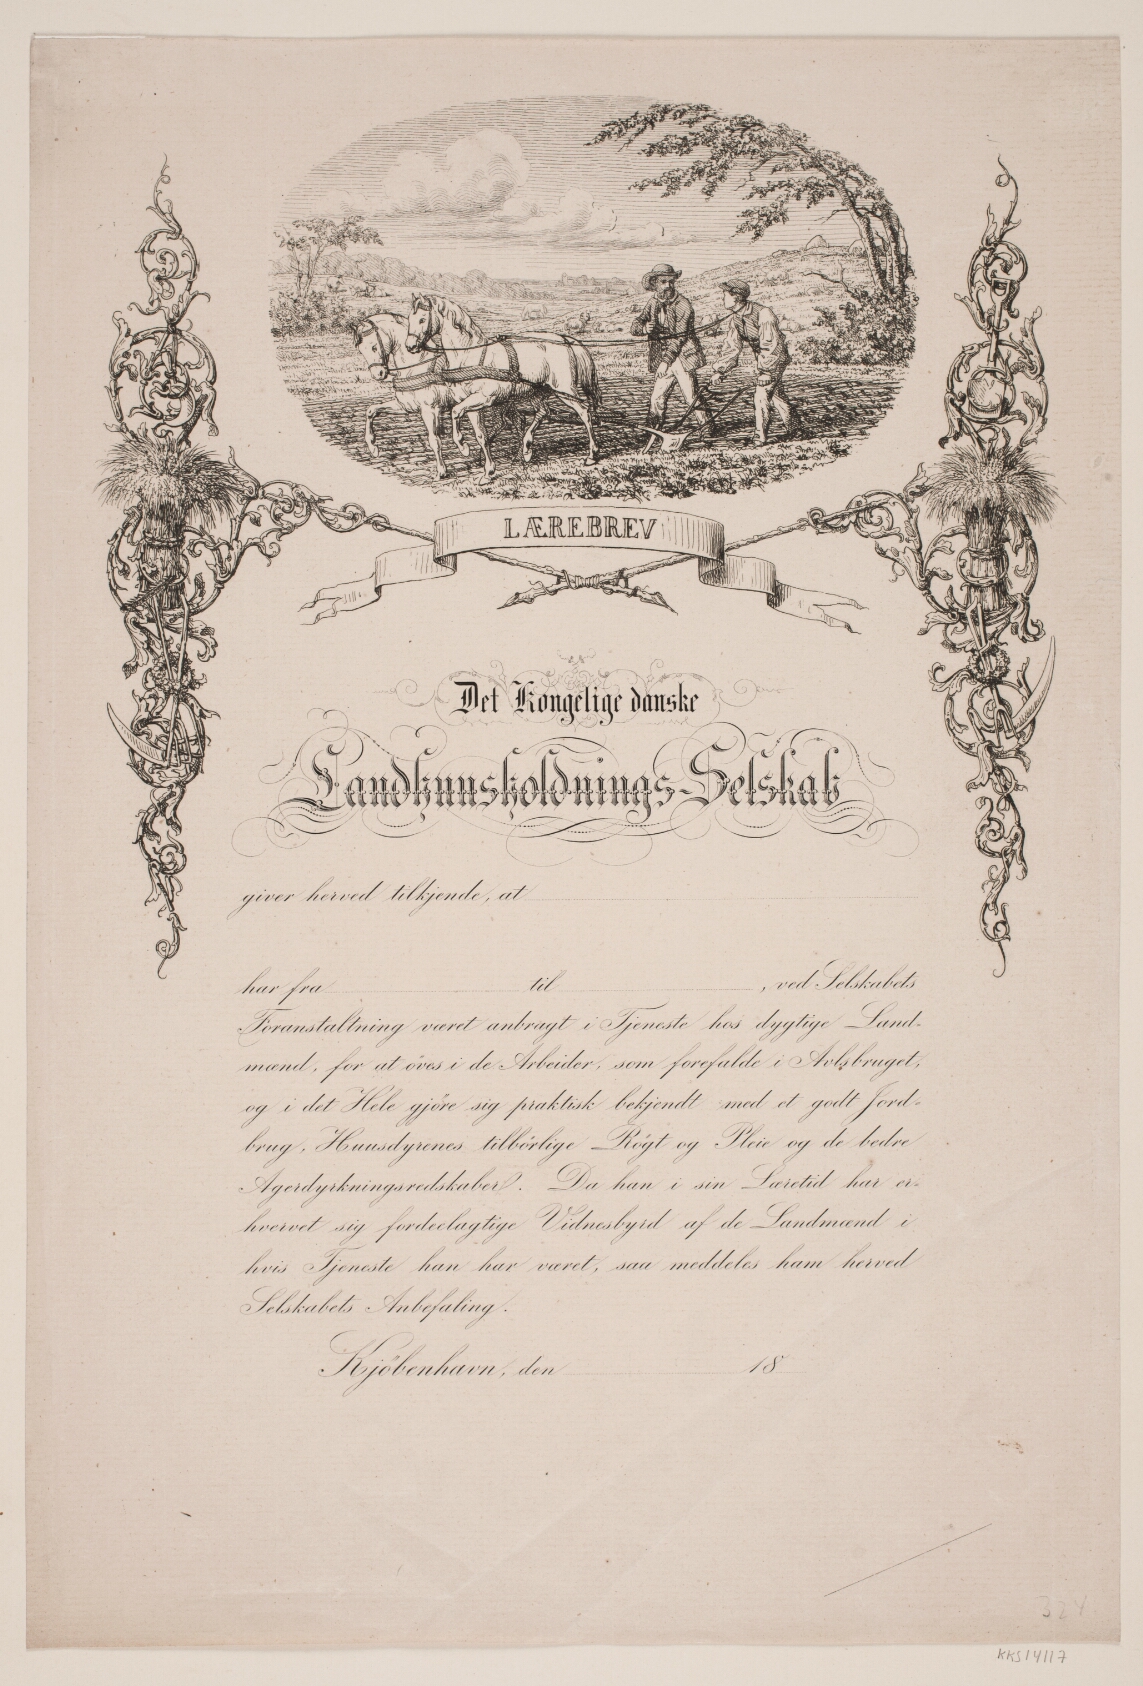 LÆREBREV
Det Kongelige danske
Landhuusholdnings-Selskab
giver herved tilkjende, at
har fra til , ved Selskabets
Foranstaltning været anbragt i Tjeneste hos dygtige Land-
mænd, for at öves i de Arbeider, som forefalde i Avlsbruget,
og i det Hele gjöre sig praktisk bekjendt med et godt Jord-
brug, Huusdyrenes tilbörlige Rögt og Pleie og de bedre
Agerdyrkningsredskaber. Da han i sin Læretid har er-
hvervet sig fordeelagtige Vidnesbyrd af de Landmænd i
hvis Tjeneste han har været, saa meddeles ham herved
Selskabets Anbefaling.
Kjöbenhavn, den 18
324
KKS14117